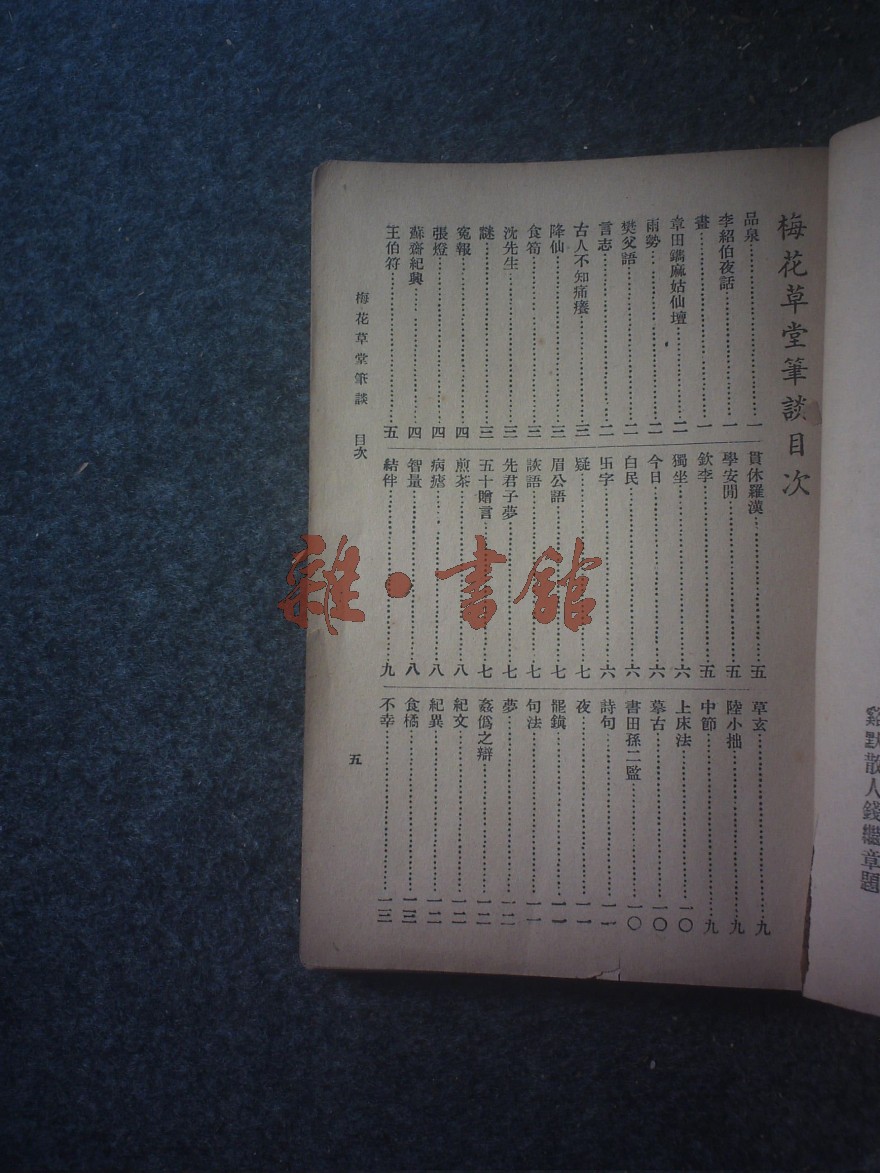 梅花草堂筆談目次
品泉⋯⋯一
李紹伯夜話⋯⋯一
畫⋯⋯一
章田鐫麻姑仙壇⋯⋯二
雨勢⋯⋯二
樊父語⋯⋯二
言志⋯⋯二
古人不知痛癢⋯⋯三
降仙⋯⋯三
食筍⋯⋯三
沈先生⋯⋯三
謎⋯⋯三
冤報⋯⋯四
張燈⋯⋯四
蘇齋紀興⋯⋯四
王伯符⋯⋯五
貫休羅漢⋯⋯五
學安閒⋯⋯五
欽李⋯⋯五
獨坐⋯⋯六
今日⋯⋯六
白民⋯⋯六
卐字⋯⋯六
疑⋯⋯七
眉公語⋯⋯七
談語⋯⋯七
先君子夢⋯⋯七
五十贈言⋯⋯七
煎茶⋯⋯八
病瘧⋯⋯八
智量⋯⋯八
結伴⋯⋯九
草玄⋯⋯九
陸小拙⋯⋯九
中節⋯⋯九
上床法⋯⋯一〇
摹古⋯⋯一〇
書田孫二監⋯⋯一〇
詩句⋯⋯一一
夜⋯⋯一一
罷鎮⋯⋯一一
句法⋯⋯一一
夢⋯⋯一二
姦僞之辯⋯⋯一二
紀文⋯⋯一二
紀異⋯⋯一二
食橘⋯⋯一三
不幸⋯⋯一三
梅花草堂筆談 目次 五
谿默散人錢繼章題
雜·書館